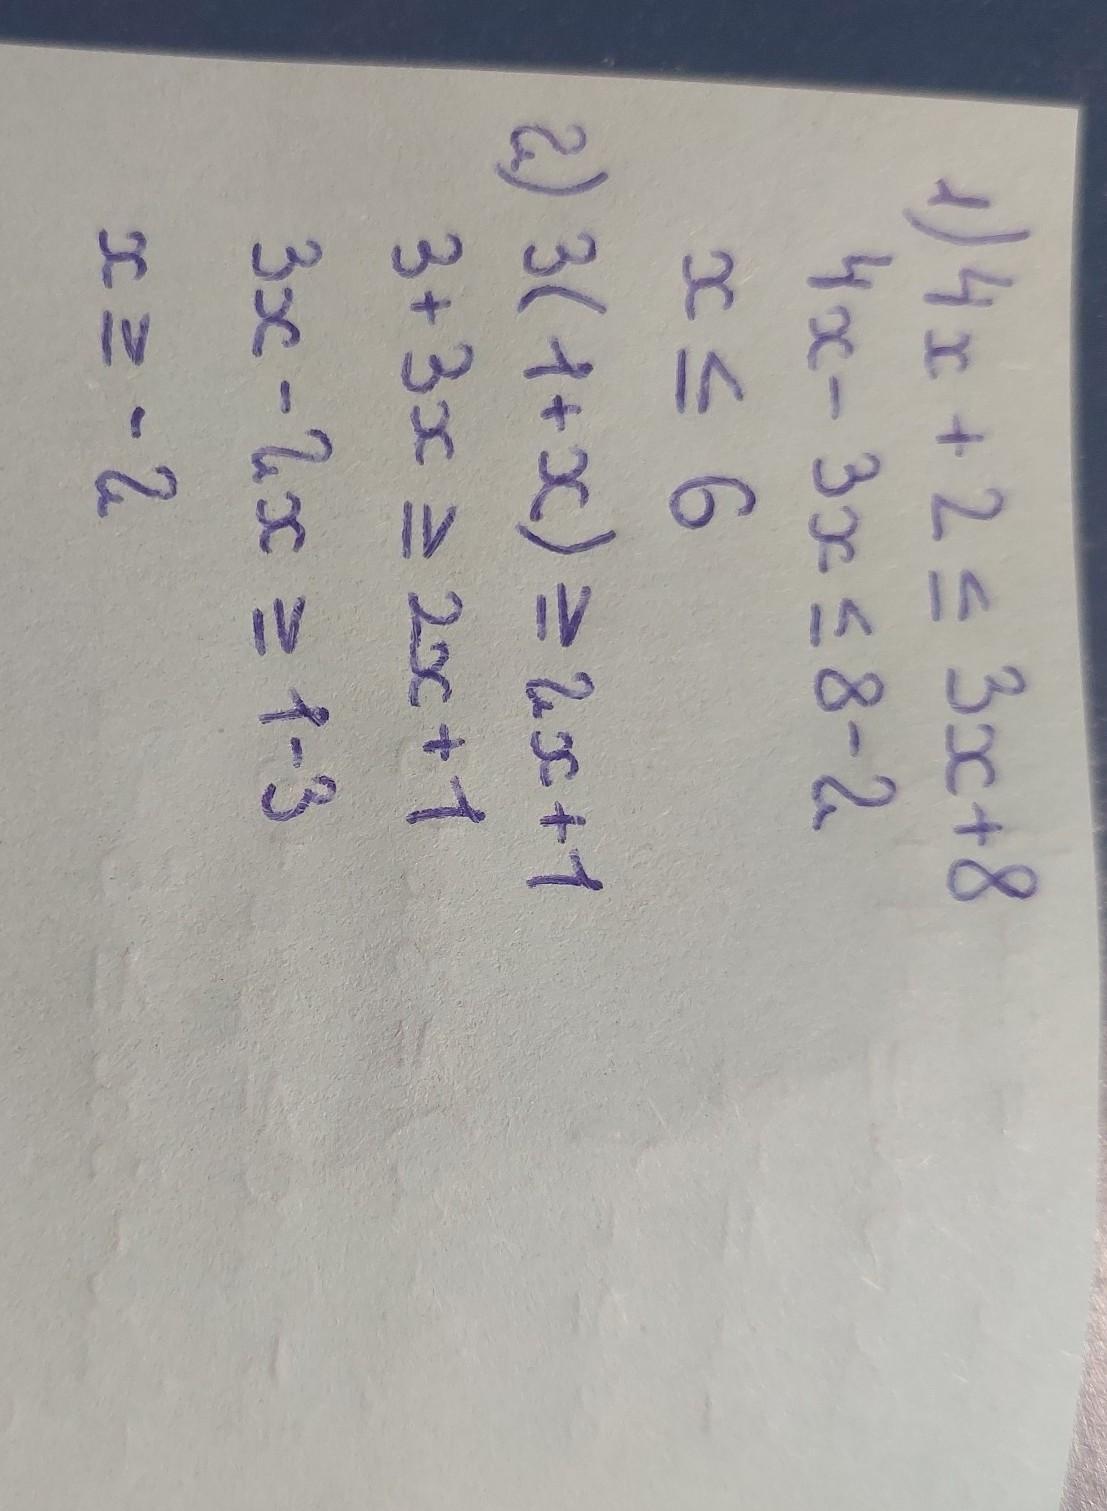 1) 4x + 2 ≤ 3x + 8
4x - 3x ≤ 8 - 2
x ≤ 6
2) 3(1 + x) ≥ 2x + 1
3 + 3x ≥ 2x + 1
3x - 2x ≥ 1 - 3
x ≥ -2